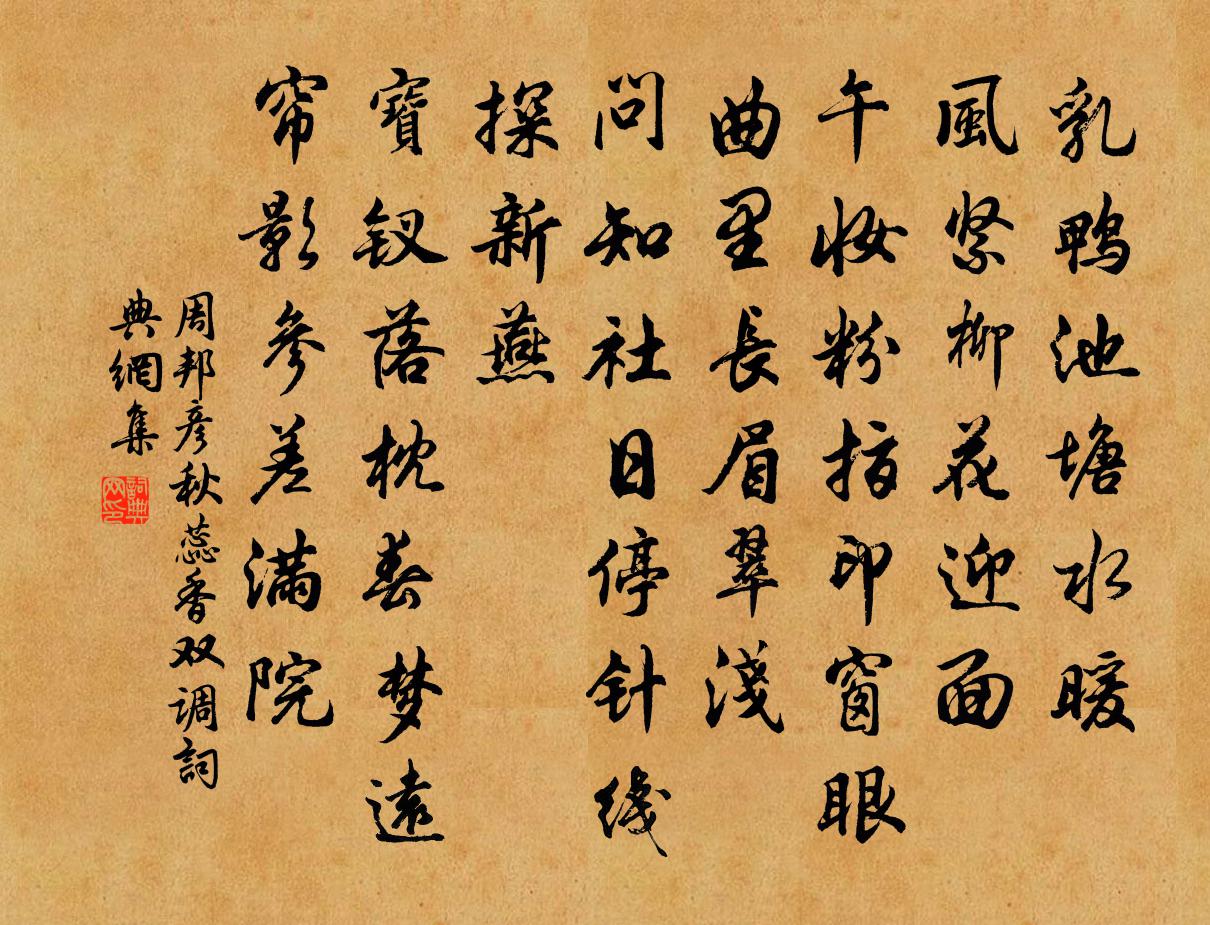 乳鴨池塘水暖
風緊柳花迎面
午妆粉指印窗眼
曲里長眉翠淺
問知社日停针綫
探新燕
寶钗落枕春梦遠
帘影參差满院
周邦彦秋蕊香双调詞
典網集
詞典网印